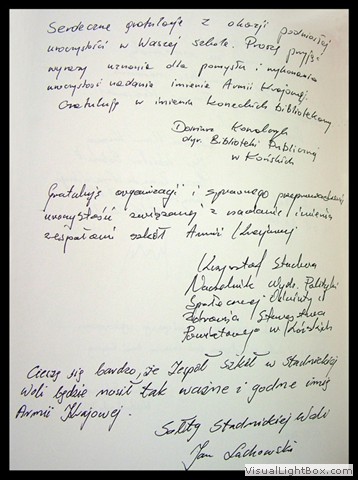 Serdeczne gratulacje z okazji podniosłej
uroczystości w Waszej szkole. Proszę przyjąć
wyrazy uznania dla pomysłu i wykonania
uroczystości nadania imienia Armii Krajowej.
Gratuluję w imieniu koneckich bibliotekarzy
Dariusz Kowalczyk
dyr. Biblioteki Publicznej
w Końskich
Gratuluję organizacji i sprawnego przeprowadzenia
uroczystości związanej z nadaniem imienia
zespołowi szkół Armii Krajowej
Krzysztof Stachera
Naczelnik Wydz. Polityki
Społecznej Oświaty i
Zdrowia Starostwa
Powiatowego w Końskich
Cieszę się bardzo, że Zespół Szkół w Stadnickiej
Woli będzie nosił tak ważne i godne imię
Armii Krajowej.
Sołtys Stadnickiej Woli
Jan Lachowski
VisualLightBox.com